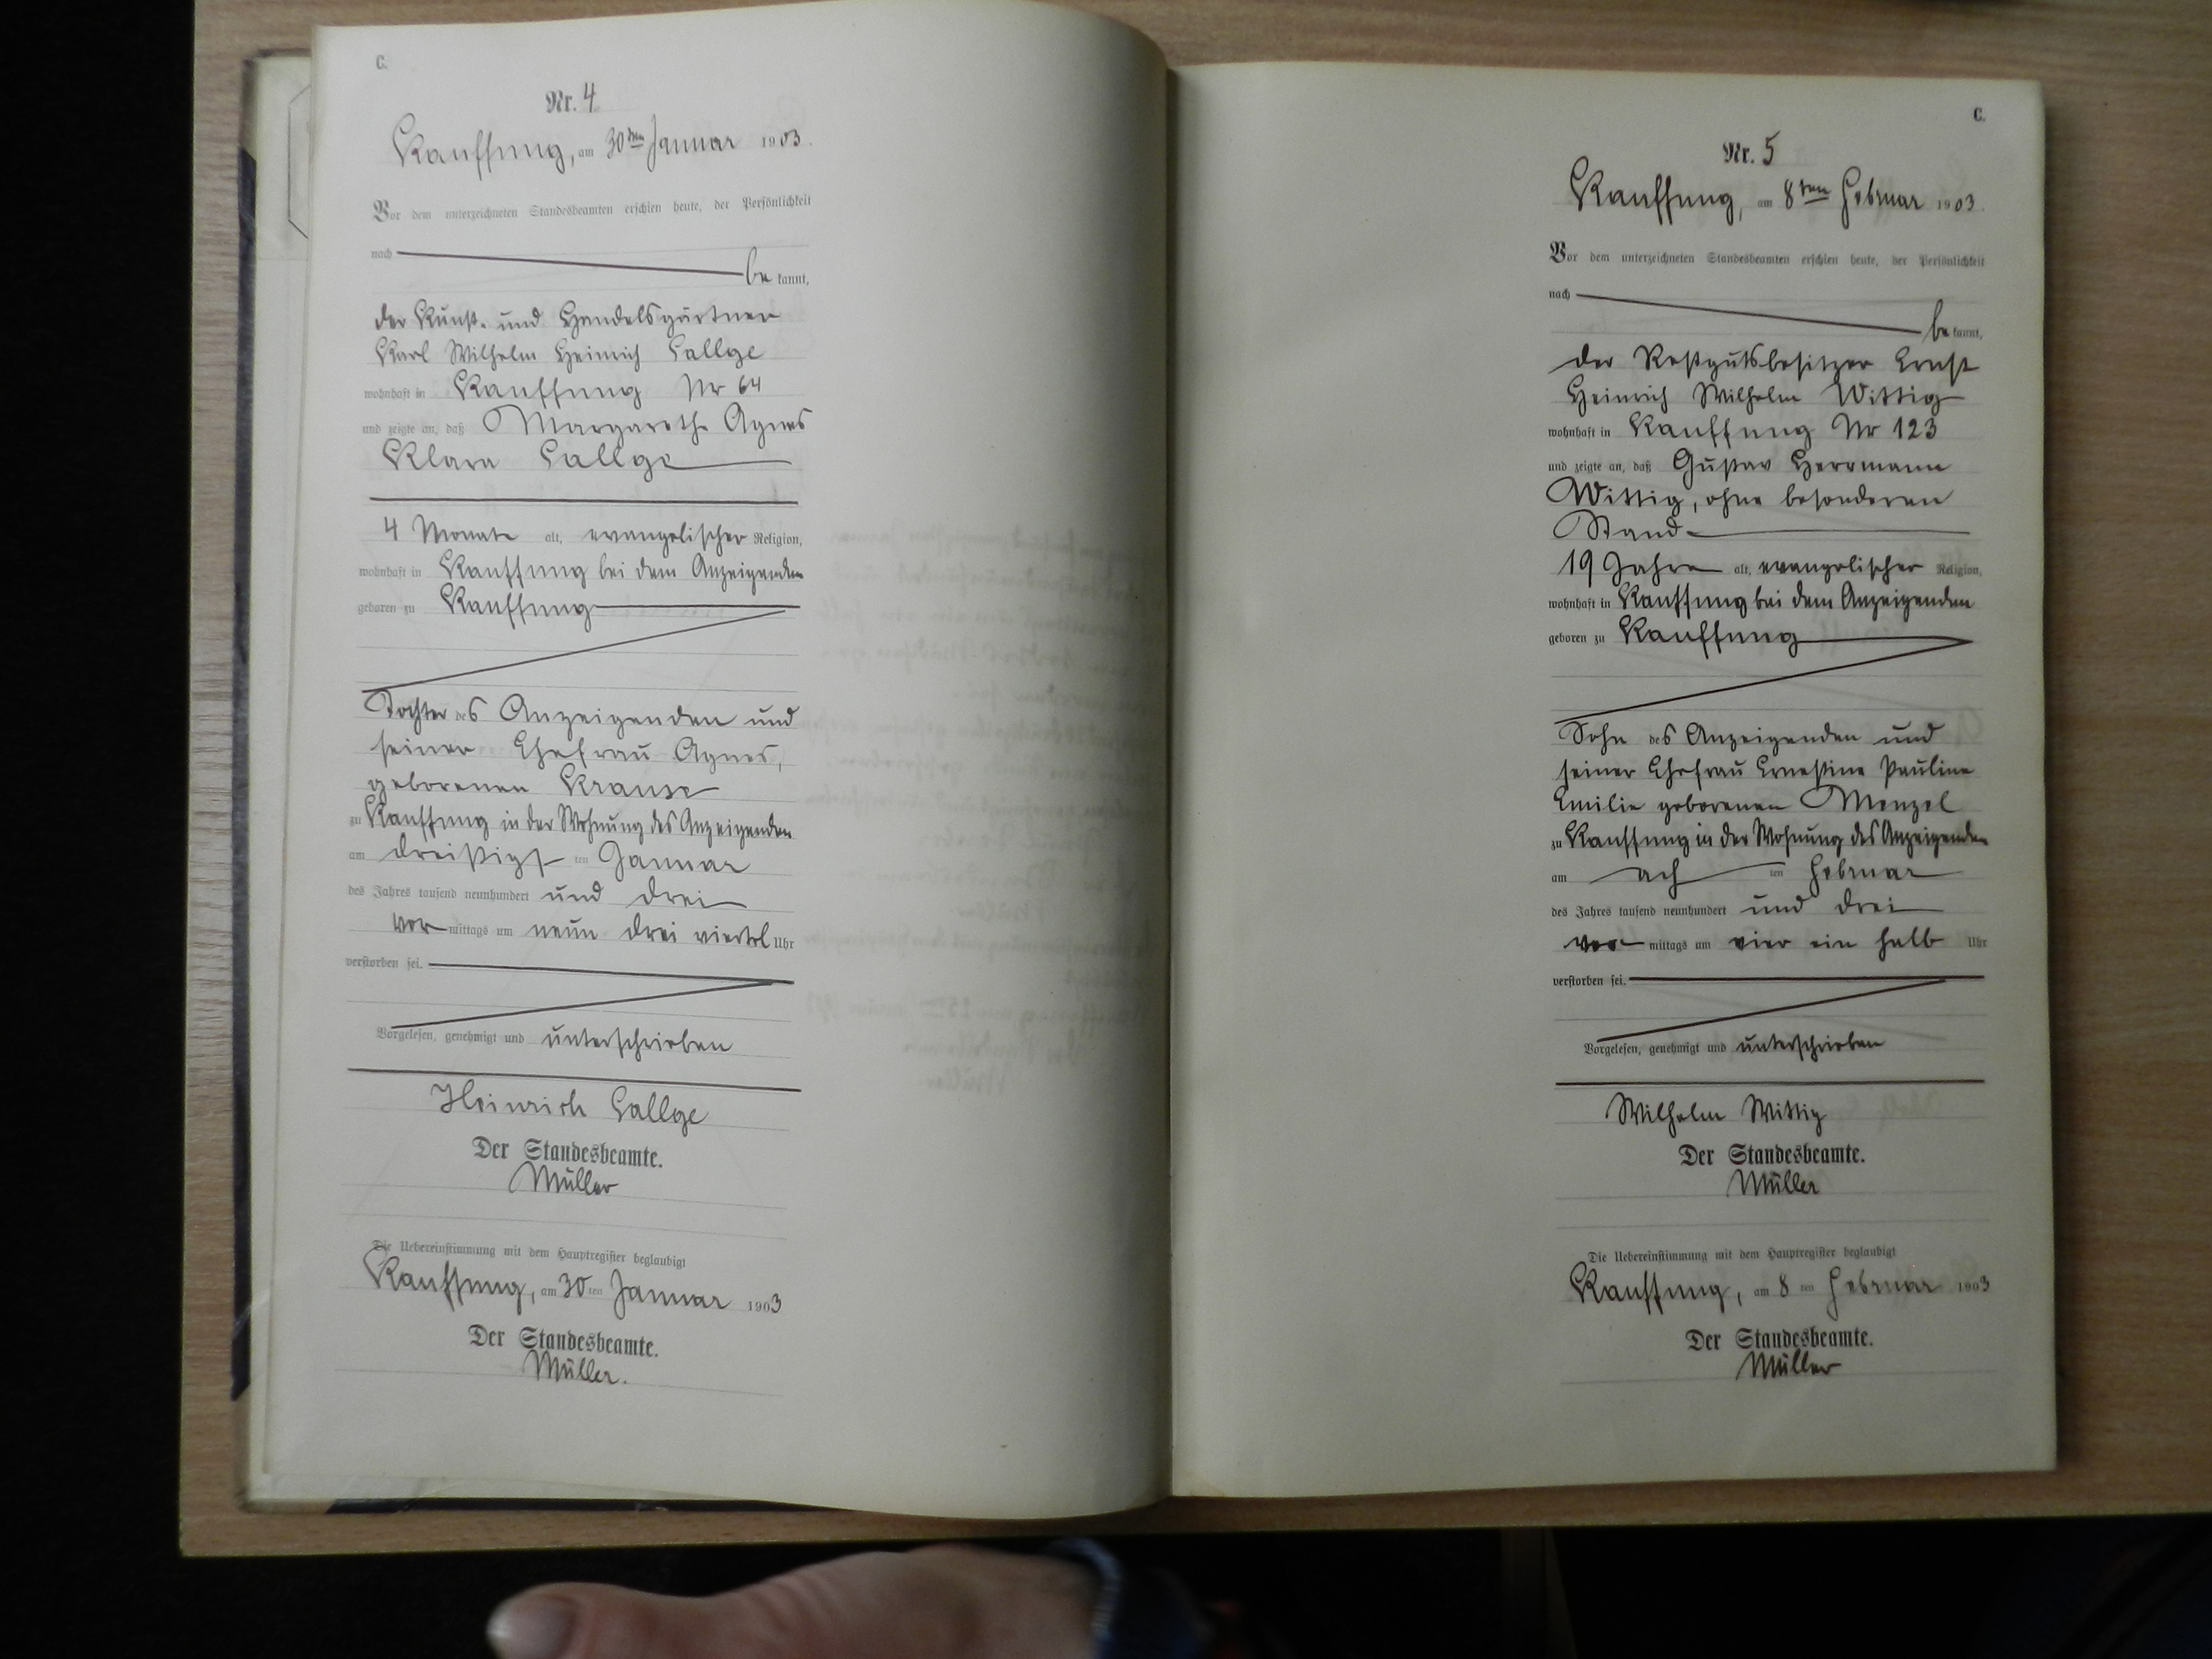 C.
Nr. 4
Kauffung, am 30ten Januar 1903.
Vor dem unterzeichneten Standesbeamten erschien heute, der Persönlichkeit
nach be kannt,
der Kunst- und Handelsgärtner
Karl Wilhelm Heinrich Callge
wohnhaft in Kauffung Nr 64
und zeigte an, daß Margarethe Agnes
Klara Callge
4 Monate alt, evangelischer Religion,
wohnhaft in Kauffung bei dem Anzeigenden
geboren zu Kauffung
Tochter des Anzeigenden und
seiner Ehefrau Agnes,
geborenen Krause
zu Kauffung in der Wohnung des Anzeigenden
am dreißigs ten Januar
des Jahres tausend neunhundert und drei
vor mittags um neun drei viertel Uhr
verstorben sei.
Vorgelesen, genehmigt und unterschrieben
Heinrich Callge
Der Standesbeamte.
Müller
Die Uebereinstimmung mit dem Hauptregister beglaubigt
Kauffung, am 30 ten Januar 1903
Der Standesbeamte.
Müller.
C.
Nr. 5
Kauffung, am 8ten Februar 1903.
Vor dem unterzeichneten Standesbeamten erschien heute, der Persönlichkeit
nach be kannt,
der Restgutsbesitzer Ernst
Heinrich Wilhelm Wittig
wohnhaft in Kauffung Nr 123
und zeigte an, daß Gustav Herrmann
Wittig, ohne besonderen
Stand
19 Jahre alt, evangelischer Religion,
wohnhaft in Kauffung bei dem Anzeigenden
geboren zu Kauffung
Sohn des Anzeigenden und
seiner Ehefrau Ernestine Pauline
Emilie geborenen Menzel
zu Kauffung in der Wohnung des Anzeigenden
am ach ten Februar
des Jahres tausend neunhundert und drei
vor mittags um vier ein halb Uhr
verstorben sei.
Vorgelesen, genehmigt und unterschrieben
Wilhelm Wittig
Der Standesbeamte.
Müller
Die Uebereinstimmung mit dem Hauptregister beglaubigt
Kauffung, am 8 ten Februar 1903
Der Standesbeamte.
Müller